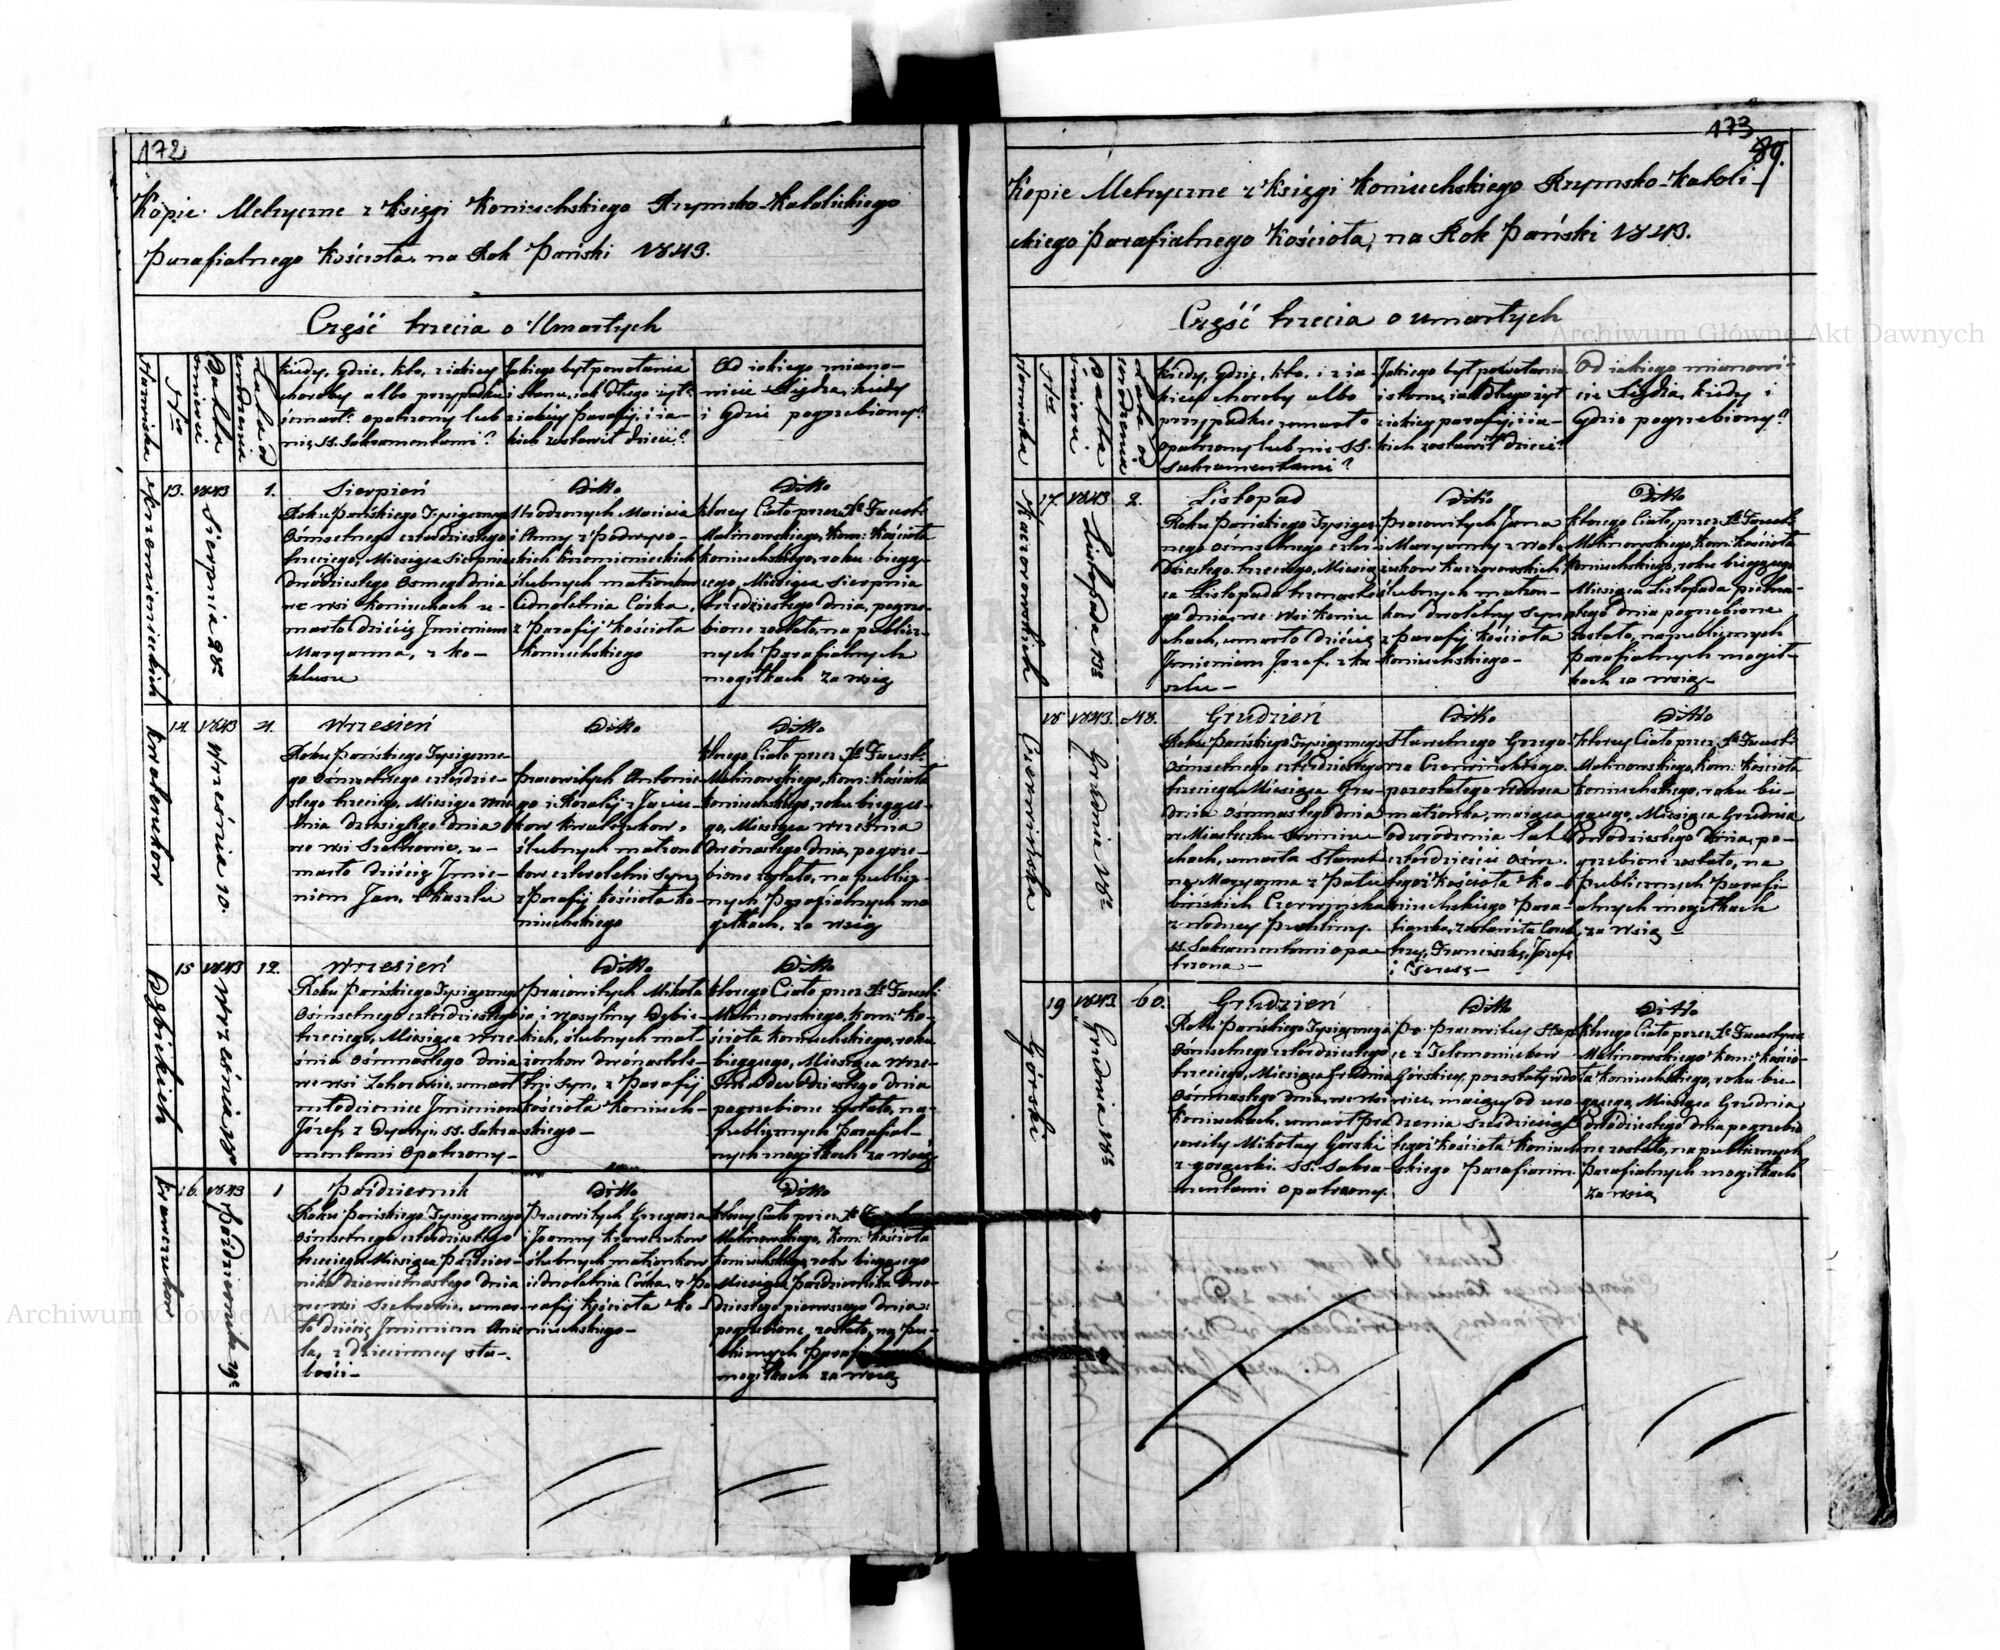 172
Kopie Metryczne z Księgi Koniuchskiego Rzymsko-Katolickiego
Parafialnego Kościoła, na Rok Pański 1843.
Część trzecia o Umarłych
Nazwiska
Nro
Datta śmierci
Lata od urodzenia
Kiedy, gdzie, kto, z iakiey
choroby albo przypadku
umarł: opatrzony lub
nie, ss. Sakramentami?
Jakiego był powołania
i stanu, iak długo żył:
z iakiey Parafij, i ia-
kich zostawił dzieci?
Od iakiego miano-
wicie Xiędza, kiedy
i gdzie pogrzebiony?
13.
1843
Sierpnia 28
1.
Sierpień
Roku Pańskiego Tysiącznego
Ośmsetnego czterdziestego
trzeciego, Miesiąca Sierpnia
dwódziestego Osmego dnia
we wsi Koniuchach u-
marło dziécię Jmieniem
Maryanna, z ko-
kluszu
Ditto
Urodzonych Macieia
i Anny z Podwyso-
ckich Krzemienieckich
ślubnych małżonków
iednoletnia Córka,
z Parafij Kościoła
Koniuchskiego
Ditto
ktorey Ciało przez Xa Faust:
Malinowskiego, Kom: Kościoła
Koniuchskiego, roku bieżą-
cego, Miesiąca Sierpnia
trzydziestego dnia, pogrze-
bione zostało, na publicz-
nych Parafialnych
mogiłkach za wsią
14.
1843
Września 10.
4.
Wrzesień
Roku Pańskiego Tysiączne-
go Ośmsetnego czterdzie-
stego trzeciego, Miesiąca Wrze-
śnia dziesiątego dnia
we wsi Szebnowie, u-
marło dziécię Jmie-
niem Jan, z kaszlu
Ditto
Pracowitych Antonie-
go i Rozalij z Jaciu-
kow
ślubnych małżon-
kow czteroletni Syn,
z Parafij Kościoła Ko-
niuchskiego
Ditto
ktorego Ciało przez Xa Faust:
Malinowskiego, Kom: Kościoła
Koniuchskiego, roku bieżące-
go, Miesiąca Września
Dwónastego dnia, pogrze-
bione zostało, na publicz-
nych Parafialnych mo-
giłkach, za wsią
15
1843
Września 18
12.
Dębickich
Wrzesień
Roku Pańskiego Tysiącznego
Ośmsetnego czterdziestego
trzeciego, Miesiąca Wrze-
śnia ośmnastego dnia
we wsi umarł
młodzieniec Jmieniem
Józef, z ss. Sakra-
mentami Opatrzony-
Ditto
Pracowitych Mikoła-
ia, i Dębic-
kich, ślubnych mał-
żonkow dwónastole-
tni Syn, z Parafij
Kościoła Koniuch-
skiego-
Ditto
ktorego Ciało przez Xa Fausti
Malinowskiego, Kom: Ko-
ścioła Koniuchskiego, roku
bieżącego, Miesiąca Wrze-
śnia dwódziestego dnia
pogrzebione zostało, na
Publicznych Parafial-
nych mogiłkach za wsią
16.
1843
Pazdziernika 19
1
Krawczukow
Październik
Roku Pańskiego Tysiącznego
Ośmsetnego czterdziestego
trzeciego Miesiąca Paździer-
nika dziewiętnastego dnia
we wsi umar-
ło dziécię Jmieniem Anie-
la, z dziecinney sła-
bości-
Ditto
Pracowitych Grzegorza
i Joanny Krawczukow
ślubnych małżonkow
iednoletnia Córka, z Pa-
rafij Kościoła Ko-
niuchskiego-
Ditto
ktorey Ciało przez Xa
Malinowskiego, Kom: Kościoła
Koniuchskiego, roku bieżącego
Miesiąca Pazdziernika Dwó-
dziestego pierwszego dnia:
pogrzebione, zostało, na Pu-
blicznych Parafialnych
mogiłkach za wsią
173
89.
Kopie Metryczne z Księgi Koniuchskiego Rzymsko-Katoli-
ckiego Parafialnego Kościoła, na Rok Pański 1843.
Część trzecia o umarłych
Nazwiska
Nro
Datta śmierci
Lata od urodzenia
Kiedy, gdzie, kto, i z ia-
kiey choroby albo
przypadku umarł:
opatrzony lub nie SS.
Sakramentami?
Jakiego był powołania
i stanu, iak długo żył
z iakiey parafij, i ia-
kich zostawił dzieci?
Od iakiego mianowi-
cie Xiędza, kiedy i
Gdzie pogrzebiony?
17.
1843
Listopada 13
2.
Kaczorowskich
Listopad
Roku Pańskiego Tysiącz-
nego ośmsetnego czter-
dziestego trzeciego, Miesią-
ca Listopada trzynaste-
go dnia, we Wsi Koniu-
chach, umarło Dziécię
Jmieniem Jozef, z ka-
szlu-
Ditto
Pracowitych Jana
i Maryanny z
Kaczorowskich
ślubnych małżon-
kow dwóletny Syn
z Parafij Kościoła
Koniuchskiego-
Ditto
ktorego Ciało, przez Xa Faust:
Malinowskiego, Kom: Kościoła
Koniuchskiego, roku bieżącego
Miesiąca Listopada pietna-
stego dnia pogrzebione
zostało, na publicznych
Parafialnych mogił-
kach za wsią-
18
1843.
Grudnia 18
48.
Czerwińska
Grudzień
Roku Pańskiego Tysiącznego
Ośmsetnego czterdziestego
trzeciego, Miesiąca Gru-
dnia ośmnastego dnia
w Miasteczku
umarła Sławet-
na Maryanna z
Czerwinska
z wodney Puchliny.
ss. Sakramentami opa-
trzona-
Ditto
Sławetnego Grzego-
rza Czerwińskiego.
pozostałego wdowca
małżonka, maiąca
od urodzenia lat
czterdzieści ośm.
tegoż Kościoła Ko-
niuchskiego Para-
fianka, zostawiła
Franciszkę, Józefę
i
Ditto
Ktorey Ciało przez Xa Faust:
Malinowskiego, Kom: Kościoła
Koniuchskiego, roku bie-
żącego, Miesiąca Grudnia
dwódziestego dnia, po-
grzebione zostało, na
Publicznych Parafi-
alnych mogiłkach
za wsią-
19
1843.
Grudnia 18
60.
Górski
Grudzień
Roku Pańskiego Tysiącznego
Ośmsetnego czterdziestego
trzeciego, Miesiąca Grudnia
ośmnastego dnia, we wsi
Koniuchach, umarł Pra-
cowity Mikołay Gorski
z gorączki. SS. Sakra-
mentami opatrzony.
Ditto
Po Pracowitey
Górskiey, pozostały wdo-
wiec, maiący od uro-
dzenia Sześdziesiąt
tegoż Kościoła Koniuch-
skiego Parafianin.
Ditto
Ktorego Ciało przez Xa Faustyna
Malinowskiego Kom: Kościo-
ła Koniuchskiego, roku bie-
żącego, Miesiąca Grudnia
Dwódziestego dnia pogrzebio-
ne zostało, na publicznych
Parafialnych mogiłkach
za wsią
Archiwum Główne Akt Dawnych
Archiwum Główne Akt Dawnych